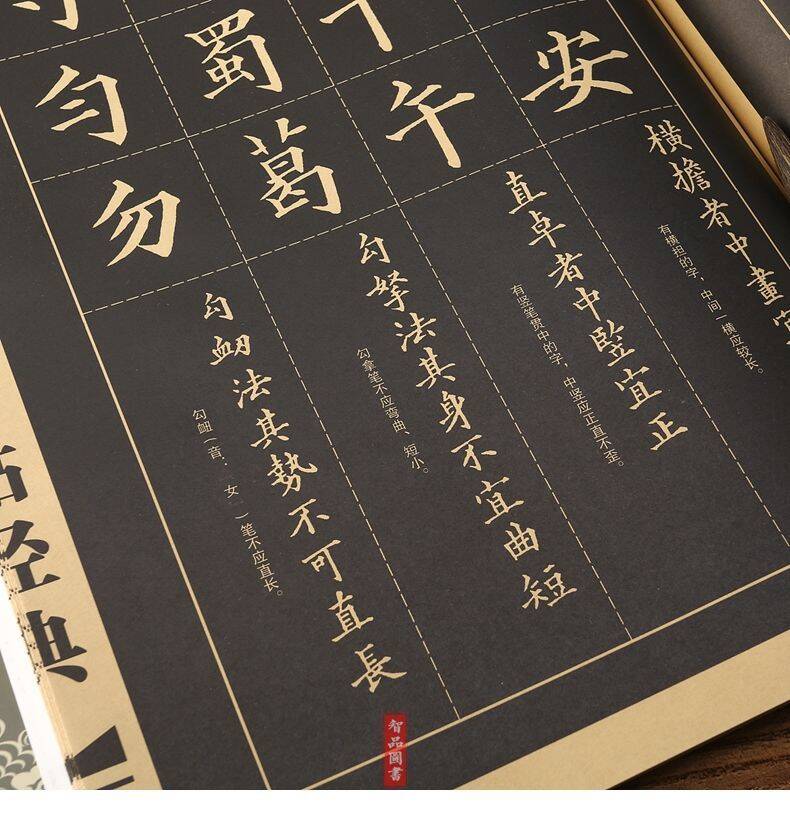 安
横擔者中畫
有横担的字，中间一横应较长。
午
直卓者中竪宜正
有竖笔贯中的字，中竖应正直不歪。
蜀
葛
勾拏法其身不宜曲短
勾拿笔不应弯曲、短小。
匀
勿
勾衄法其勢不可直長
勾衄（音：女）笔不应直长。
经典
智品圖書